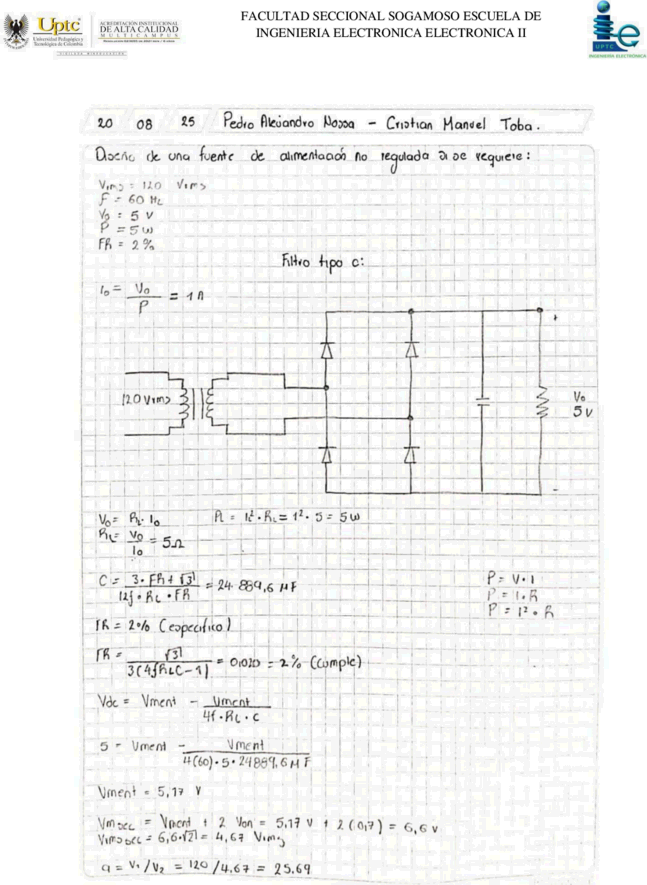 Uptc
Universidad Pedagógica y
Tecnológica de Colombia
ACREDITACIÓN INSTITUCIONAL
DE ALTA CALIDAD
MULTICAMPUS
FACULTAD SECCIONAL SOGAMOSO ESCUELA DE
INGENIERIA ELECTRONICA ELECTRONICA II
UPTC
INGENIERÍA ELECTRÓNICA
20 08 25 Pedro Alejandro Nossa - Cristian Manuel Toba.
Diseño de una fuente de alimentación no regulada si se requiere:
Vrms = 120 Vrms
F = 60 Hz
Vo = 5 V
P = 5 w
FR = 2%
Filtro tipo c:
Io = Vo / P = 1 A
120 Vrms
+
Vo
5 v
-
Vo = RL · Io PL = IL² · RL = 1² · 5 = 5 w
RL = Vo / Io = 5 Ω
C = (3 · FR + √3) / (12f · RL · FR) = 24 889,6 μF
P = V · I
P = I · R
P = I² · R
FR = 2% (especifico)
FR = √3 / 3(4fRLC - 1) = 0,020 = 2% (cumple)
Vdc = Vment - Vment / (4f · RL · C)
5 = Vment - Vment / (4(60) · 5 · 24889,6 μF)
Vment = 5,17 V
Vm sec = Vment + 2 Von = 5,17 V + 2 (0,7) = 6,6 v
Vrms sec = 6,6 · √2 = 4,67 Vrms
a = V1 / V2 = 120 / 4,67 = 25.69